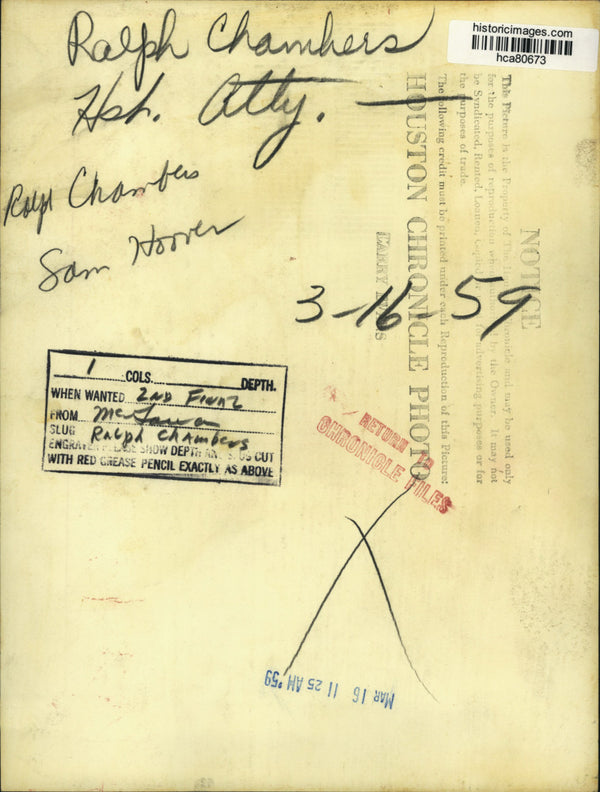 historicimages.com
hca80673
Ralph Chambers
Hsh. Atty. —
Ralph Chambers
Sam Hoover
3-16-59
1 COLS. DEPTH.
WHEN WANTED 2ND FINAL
FROM
SLUG Ralph Chambers
ENGRAVER PLEASE SHOW DEPTH CUT
WITH RED GREASE PENCIL EXACTLY AS ABOVE
RETURN TO
CHRONICLE FILES
MAR 16 11 25 AM '59
NOTICE
This Picture is the Property of The Chronicle and may be used only
for the purposes of reproduction by the Owner. It may not
be Syndicated, Rented, Loaned, advertising purposes or for
the purposes of trade.
The following credit must be printed under each Reproduction of this Picture:
HOUSTON CHRONICLE PHOTO